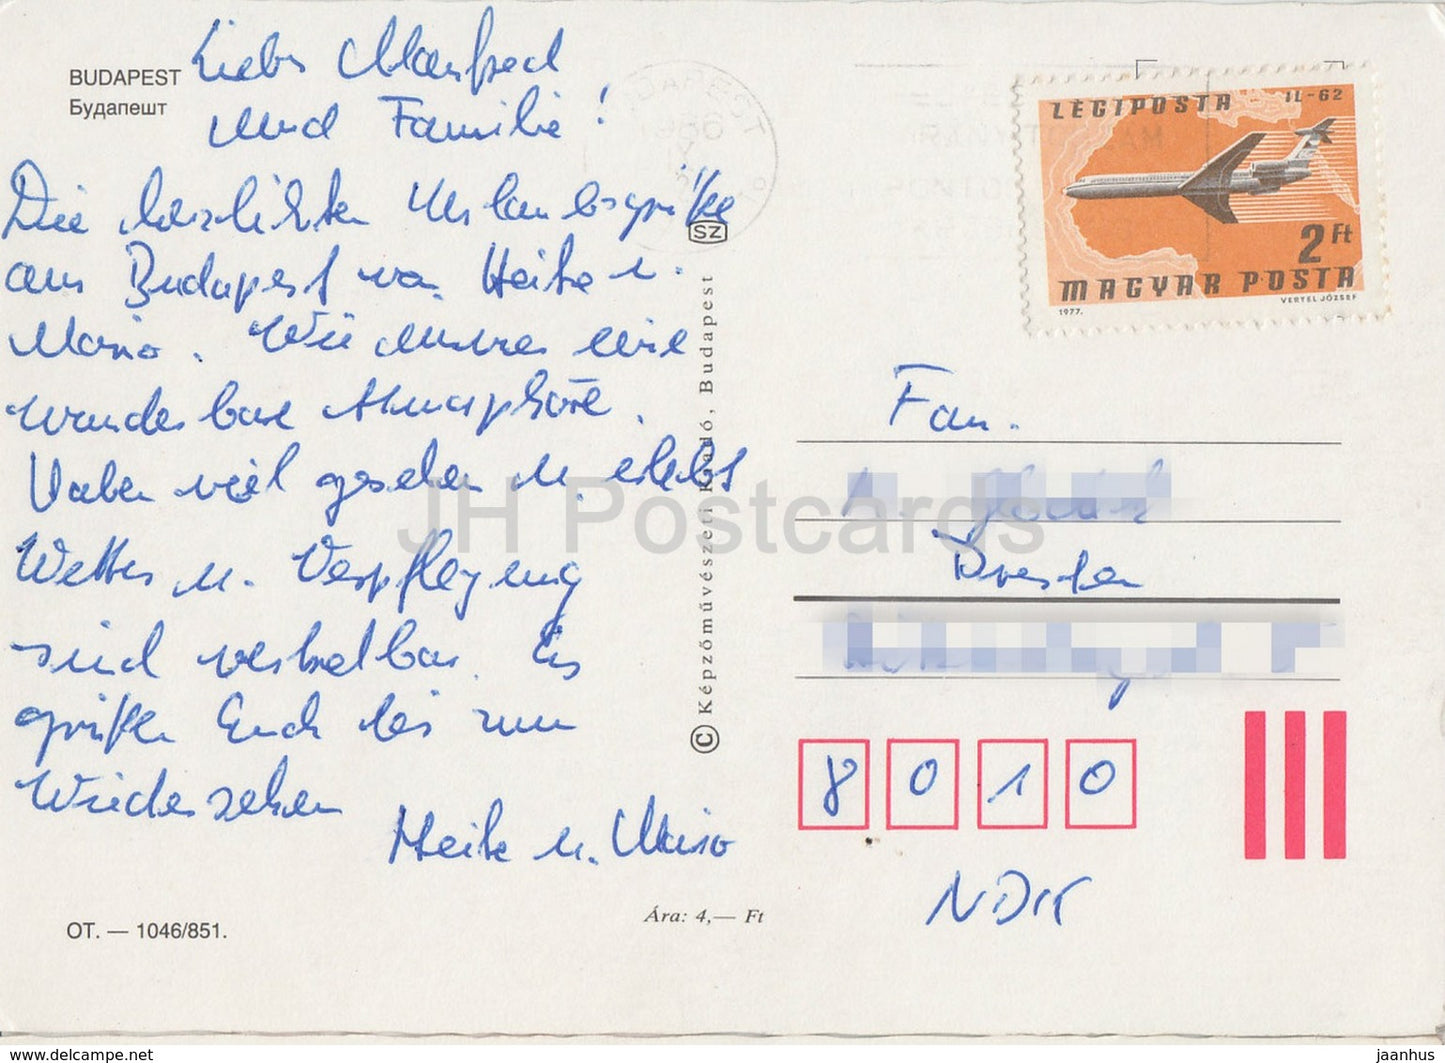 BUDAPEST
Будапешт
Lieber Manfred
und Familie!
Die herzlichsten Urlaubsgrüße
aus Budapest von Heike u.
Mario. Wie immer eine
wunderbare Atmosphäre.
Haben viel gesehen u. erlebt
Wetter u. Verpflegung
sind wunderbar. Es
grüßen Euch bis zum
Wiedersehen
Heike u. Mario
OT. — 1046/851.
Ára: 4,— Ft
SZ
© Képzőművészeti Kiadó, Budapest
BUDAPEST
LÉGIPOSTA IL-62
2 Ft
MAGYAR POSTA
1977. VERTEL JÓZSEF
Fam.
Dresden
8010
NDK
JH Postcards
www.delcampe.net
jaanhus